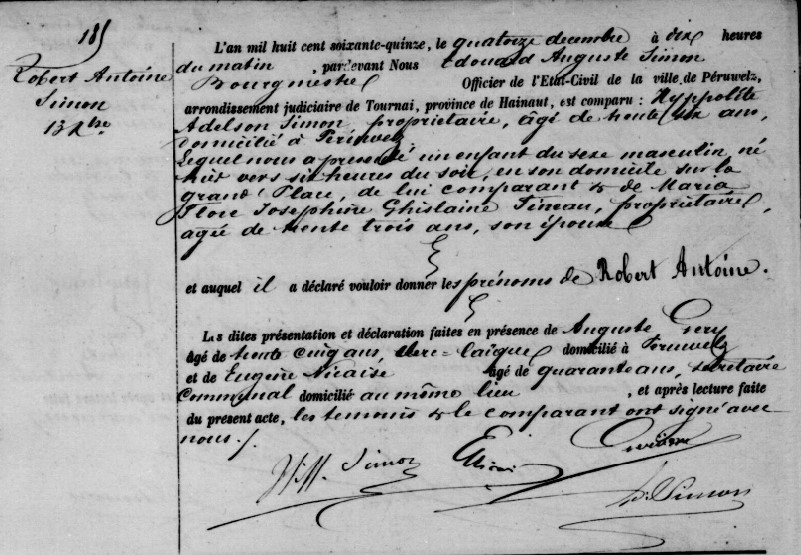 185
Robert Antoine
Simon
L'an mil huit cent soixante-quinze, le quatorze decembre à dix heures
du matin, pardevant Nous Edouard Auguste Simon
Bourgmestre Officier de l'Etat-Civil de la ville de Péruwelz,
arrondissement judiciaire de Tournai, province de Hainaut, est comparu : Hyppolite
Adelson Simon proprietaire, âgé de trente six ans,
domicilié à Péruwelz
Lequel nous a presenté un enfant du sexe masculin né
hier vers six heures du soir, en son domicile sur la
grand' Place, de lui comparant & de Maria
Flore Josephine Ghislaine Simon, propriétaire,
agée de trente trois ans, son épouse
et auquel il a déclaré vouloir donner les prénoms de Robert Antoine.
Les dites présentation et déclaration faites en présence de Auguste
âgé de trente cinq ans, clerc-laïque domicilié à Peruwelz
et de Eugène Nicaise âgé de quarante ans, secretaire
Communal domicilié au même lieu, et après lecture faite
du présent acte, les temoins & le comparant ont signé avec
nous./.
Simon
Simon